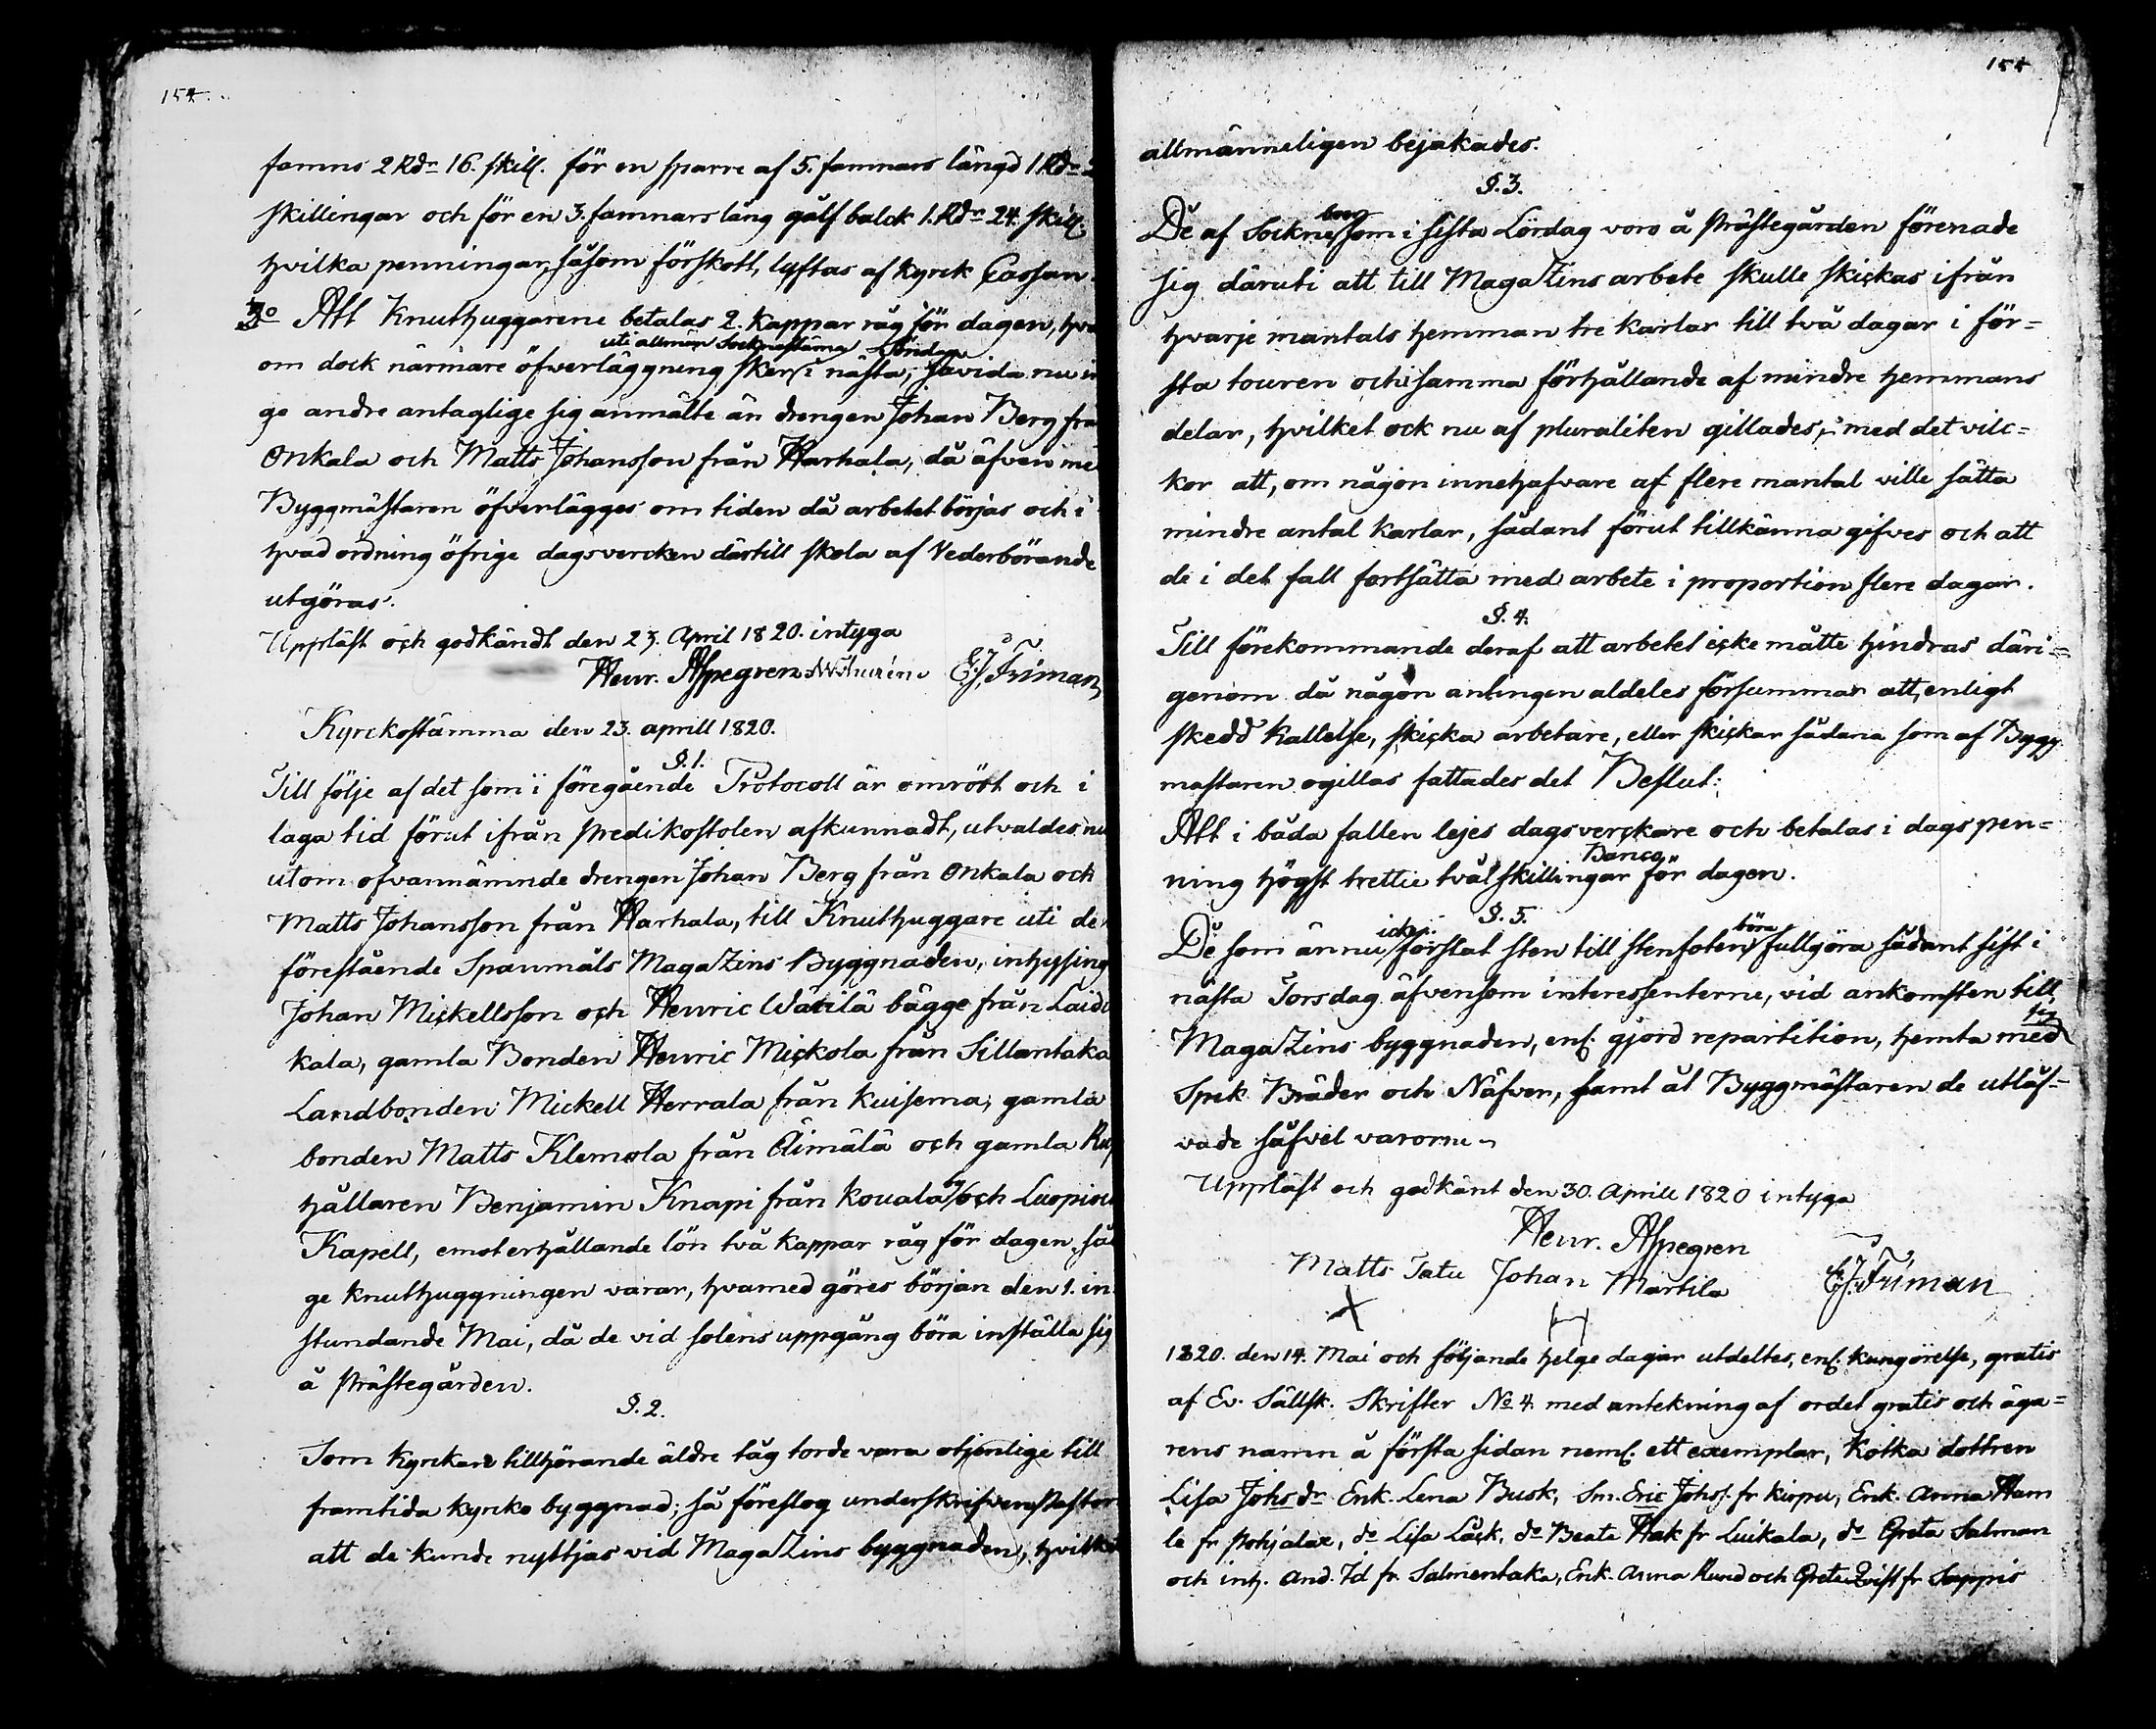 154.
famns 2 Rdr 16. skill. för en sparre af 5. famnars längd 1 Rdr
skillingar och för en 3. famnars lång gålf balck 1. Rdr 24. skill.
hvilka penningar, såsom förskott, lyftas af kyrck Cassan.
3o Att Knuthuggarene betalas 2. kappar råg för dagen, hvar
uti allmän Socknestämma Söndag
om dock närmare öfwerläggning sker i nästa, såvida nu in
ge andre antaglige sig anmälte än drengen Johan Berg frå
Onkala och Matts Johansson från Harhala, då äfven me
Byggmästaren öfverlägges om tiden då arbetet börjas och i
hvad ordning öfrige dagsvercken därtill skola af Vederbörande
utgöras.
Uppläst och godkändt den 23. April 1820. intyga
Henr. Aspegren E.J. Friman
Kyrckostämma den 23. aprill 1820.
§. 1.
Till följe af det som i föregående Protocoll är omrört och i
laga tid förut ifrån Predikostolen afkunnadt, utvaldes nu
utom ofvannämnde drengen Johan Berg från Onkala och
Matts Johansson från Harhala, till Knuthuggare uti de
förestående Spanmåls MagaZins Byggnaden, inhysing
Johan Mickellsson och Henric Wätilä bägge från Laidi
kala, gamla Bonden Henric Mickola från Sillantaka
Landbonden Mickell Herrala från Kuisema, gamla
bonden Matts Klemola från Äimälä och gamla Rus
hållaren Benjamin Knapi från Kouala by och Luopiois
Kapell, emot erhållande lön två kappar råg för dagen, så
ge knuthuggningen varar, hvarmed göres början den 1. in
stundande Mai, då de vid solens uppgång böra inställa sig
å Prästegården.
§. 2.
Som Kyrckans tillhörande äldre tåg torde vara otjenlige till
framtida kyrko byggnad; så föreslog underskrifven Pastor
att de kunde nyttjas vid MagaZins byggnaden, hvilket
154
allmänneligen bejakades.
§. 3.
boer
De af Sockne som i sista Lördag voro å Prästegården förenade
sig däruti att till MagaZins arbete skulle skickas ifrån
hvarje mantals hemman tre karlar till två dagar i för=
sta touren och i samma förhållande af mindre hemmans
delar, hvilket ock nu af pluraliten gillades, med det vilc=
kor att, om någon innehafvare af flere mantal ville sätta
mindre antal karlar, sådant förut tillkänna gifves och att
de i det fall fortsätta med arbete i proportion flere dagar.
§. 4.
Till förekommande deraf att arbetet icke måtte hindras däri=
genom då någon antingen aldeles försummar att, enligt
skedd kallelse, skicka arbetare, eller skickar sådana som af Bygg
mastaren ogillas fattades det Beslut:
Att i båda fallen lejes dagsverckare och betalas i dagspen=
Banco
ning högst trettie två skillingar för dagen.
§. 5.
icke böra
De som ännu förslat sten till stenfoten fullgöra sådant sist i
nästa Torsdag äfvensom interessenterne, vid ankomsten till
sig
MagaZins byggnaden, enl. gjord repartition, hemta med
Spik Bräder och Näfver, samt åt Byggmästaren de utläf=
vade såfvel varorne
Uppläst och godkänt den 30. Aprill 1820 intyga
Henr. Aspegren
Matts Tatu Johan Martila E.J. Friman
X H
1820. den 14. Mai och följande helge dagar utdeltes, enl. kungörelse, gratis
af Ev. Sällsk. Skrifter No 4 med antekning af ordet gratis och äga=
rens namn å första sidan neml. ett exemplar, Kotka dottren
Lisa Johs dr Enk. Lena Busk, Sm. Eric Johss. fr Kirpu, Enk. Anna Ham
le fr Pohjalax, do Lisa Läck, do Beata Hak fr Luikala, do Greta Salman
och inh. And. Id fr. Salmentaka, Enk. Anna Rund och Greta Qvist fr Sappis